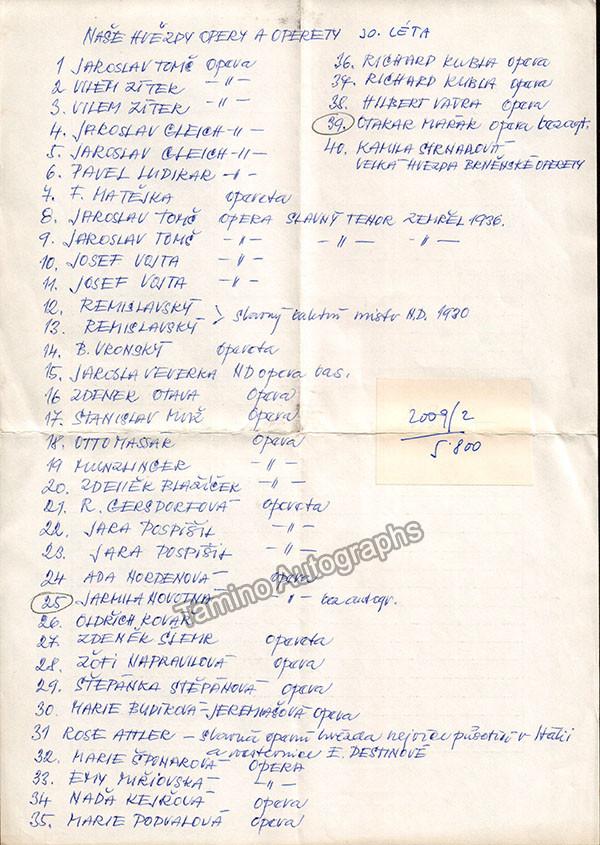 NAŠE HVĚZDY OPERY A OPERETY 30. LÉTA
1 JAROSLAV TOMŠ opera
2 VILÉM ZÍTEK -"-
3. VILEM ZÍTEK -"-
4. JAROSLAV GLEICH -"-
5. JAROSLAV GLEICH -"-
6. PAVEL LUDIKAR -"-
7. F. MATĚJKA opereta
8. JAROSLAV TOMŠ OPERA SLAVNÝ TENOR ZEMŘEL 1936.
9. JAROSLAV TOMŠ -"- -"- -"-
10. JOSEF VOJTA -"-
11. JOSEF VOJTA -"-
12. REMISLAVSKÝ
13. REMISLAVSKÝ > slavný baletní mistr N.D. 1930
14. B. VRONSKÝ opereta
15. JAROSLA VEVERKA ND opera bas.
16 ZDENEK OTAVA opera
17. STANISLAV MUŽ opera
18. OTTO MASSAR opera
19 MUNZLINGER -"-
20. ZDENĚK BLAŽÍČEK -"-
21. R. GERSDORFOVÁ opereta
22. JARA POSPÍŠIL -"-
23. JARA POSPÍŠIL -"-
24 ADA NORDENOVÁ opera
25 JARMILA NOVOTNÁ -"- bez autogr.
26. OLDŘICH KOVÁŘ
27. ZDENĚK ŠLEHR opereta
28. ŽOFI NAPRAVILOVÁ opera
29. ŠTĚPÁNKA ŠTĚPÁNOVÁ opera
30. MARIE BUDÍKOVÁ-JEREMIÁŠOVÁ opera
31 ROSE AHLER - slavná operní hvězda nejvíce působící v Itálii
a vrstevnice E. DESTINOVÉ
32. MARIE ŠPONAROVÁ OPERA
33. EMY MIŘIOVSKÁ -"-
34 NAĎA KEJŘOVÁ opera
35. MARIE PODVALOVÁ opera
36. RICHARD KUBLA opera
37. RICHARD KUBLA opera
38. HILBERT VÁVRA opera
39. OTAKAR MAŘÁK opera bez agt.
40. KAMILA
VELKÁ HVĚZDA BRNĚNSKÉ OPERETY
2009/2
5.800
Tamino Autographs